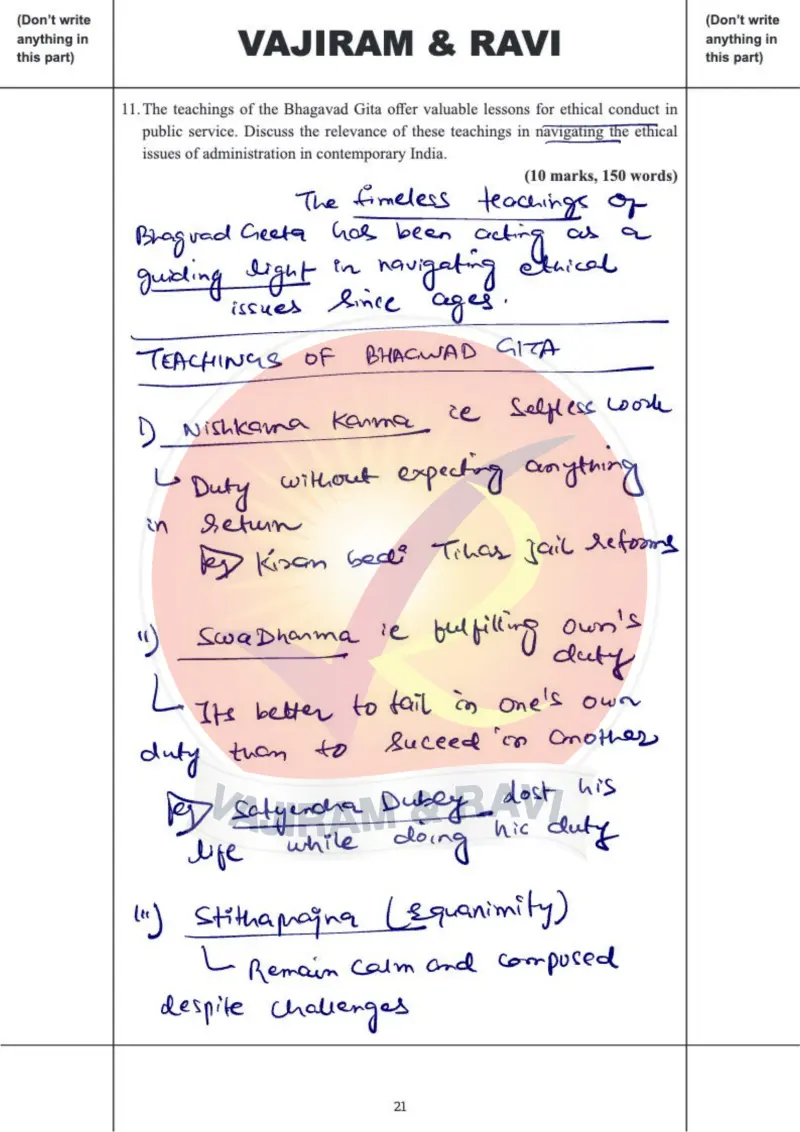 (Don't write
anything in
this part)
VAJIRAM & RAVI
(Don't write
anything in
this part)
11. The teachings of the Bhagavad Gita offer valuable lessons for ethical conduct in
public service. Discuss the relevance of these teachings in navigating the ethical
issues of administration in contemporary India.
(10 marks, 150 words)
The timeless teachings of
Bhagvad Geeta has been acting as a
guiding light in navigating ethical
issues since ages.
TEACHINGS OF BHAGWAD GITA
i) Nishkama Karma ie Selfless work
↳ Duty without expecting anything
in return
eg Kiran bedi Tihar Jail reforms
ii) SwaDharma ie fulfilling own's
duty
Its better to fail in one's own
duty than to Suceed in another
eg Satyendra Dubey lost his
life while doing his duty
VAJIRAM & RAVI
iii) Stithaprajna (Equanimity)
Remain Calm and composed
despite challenges
21